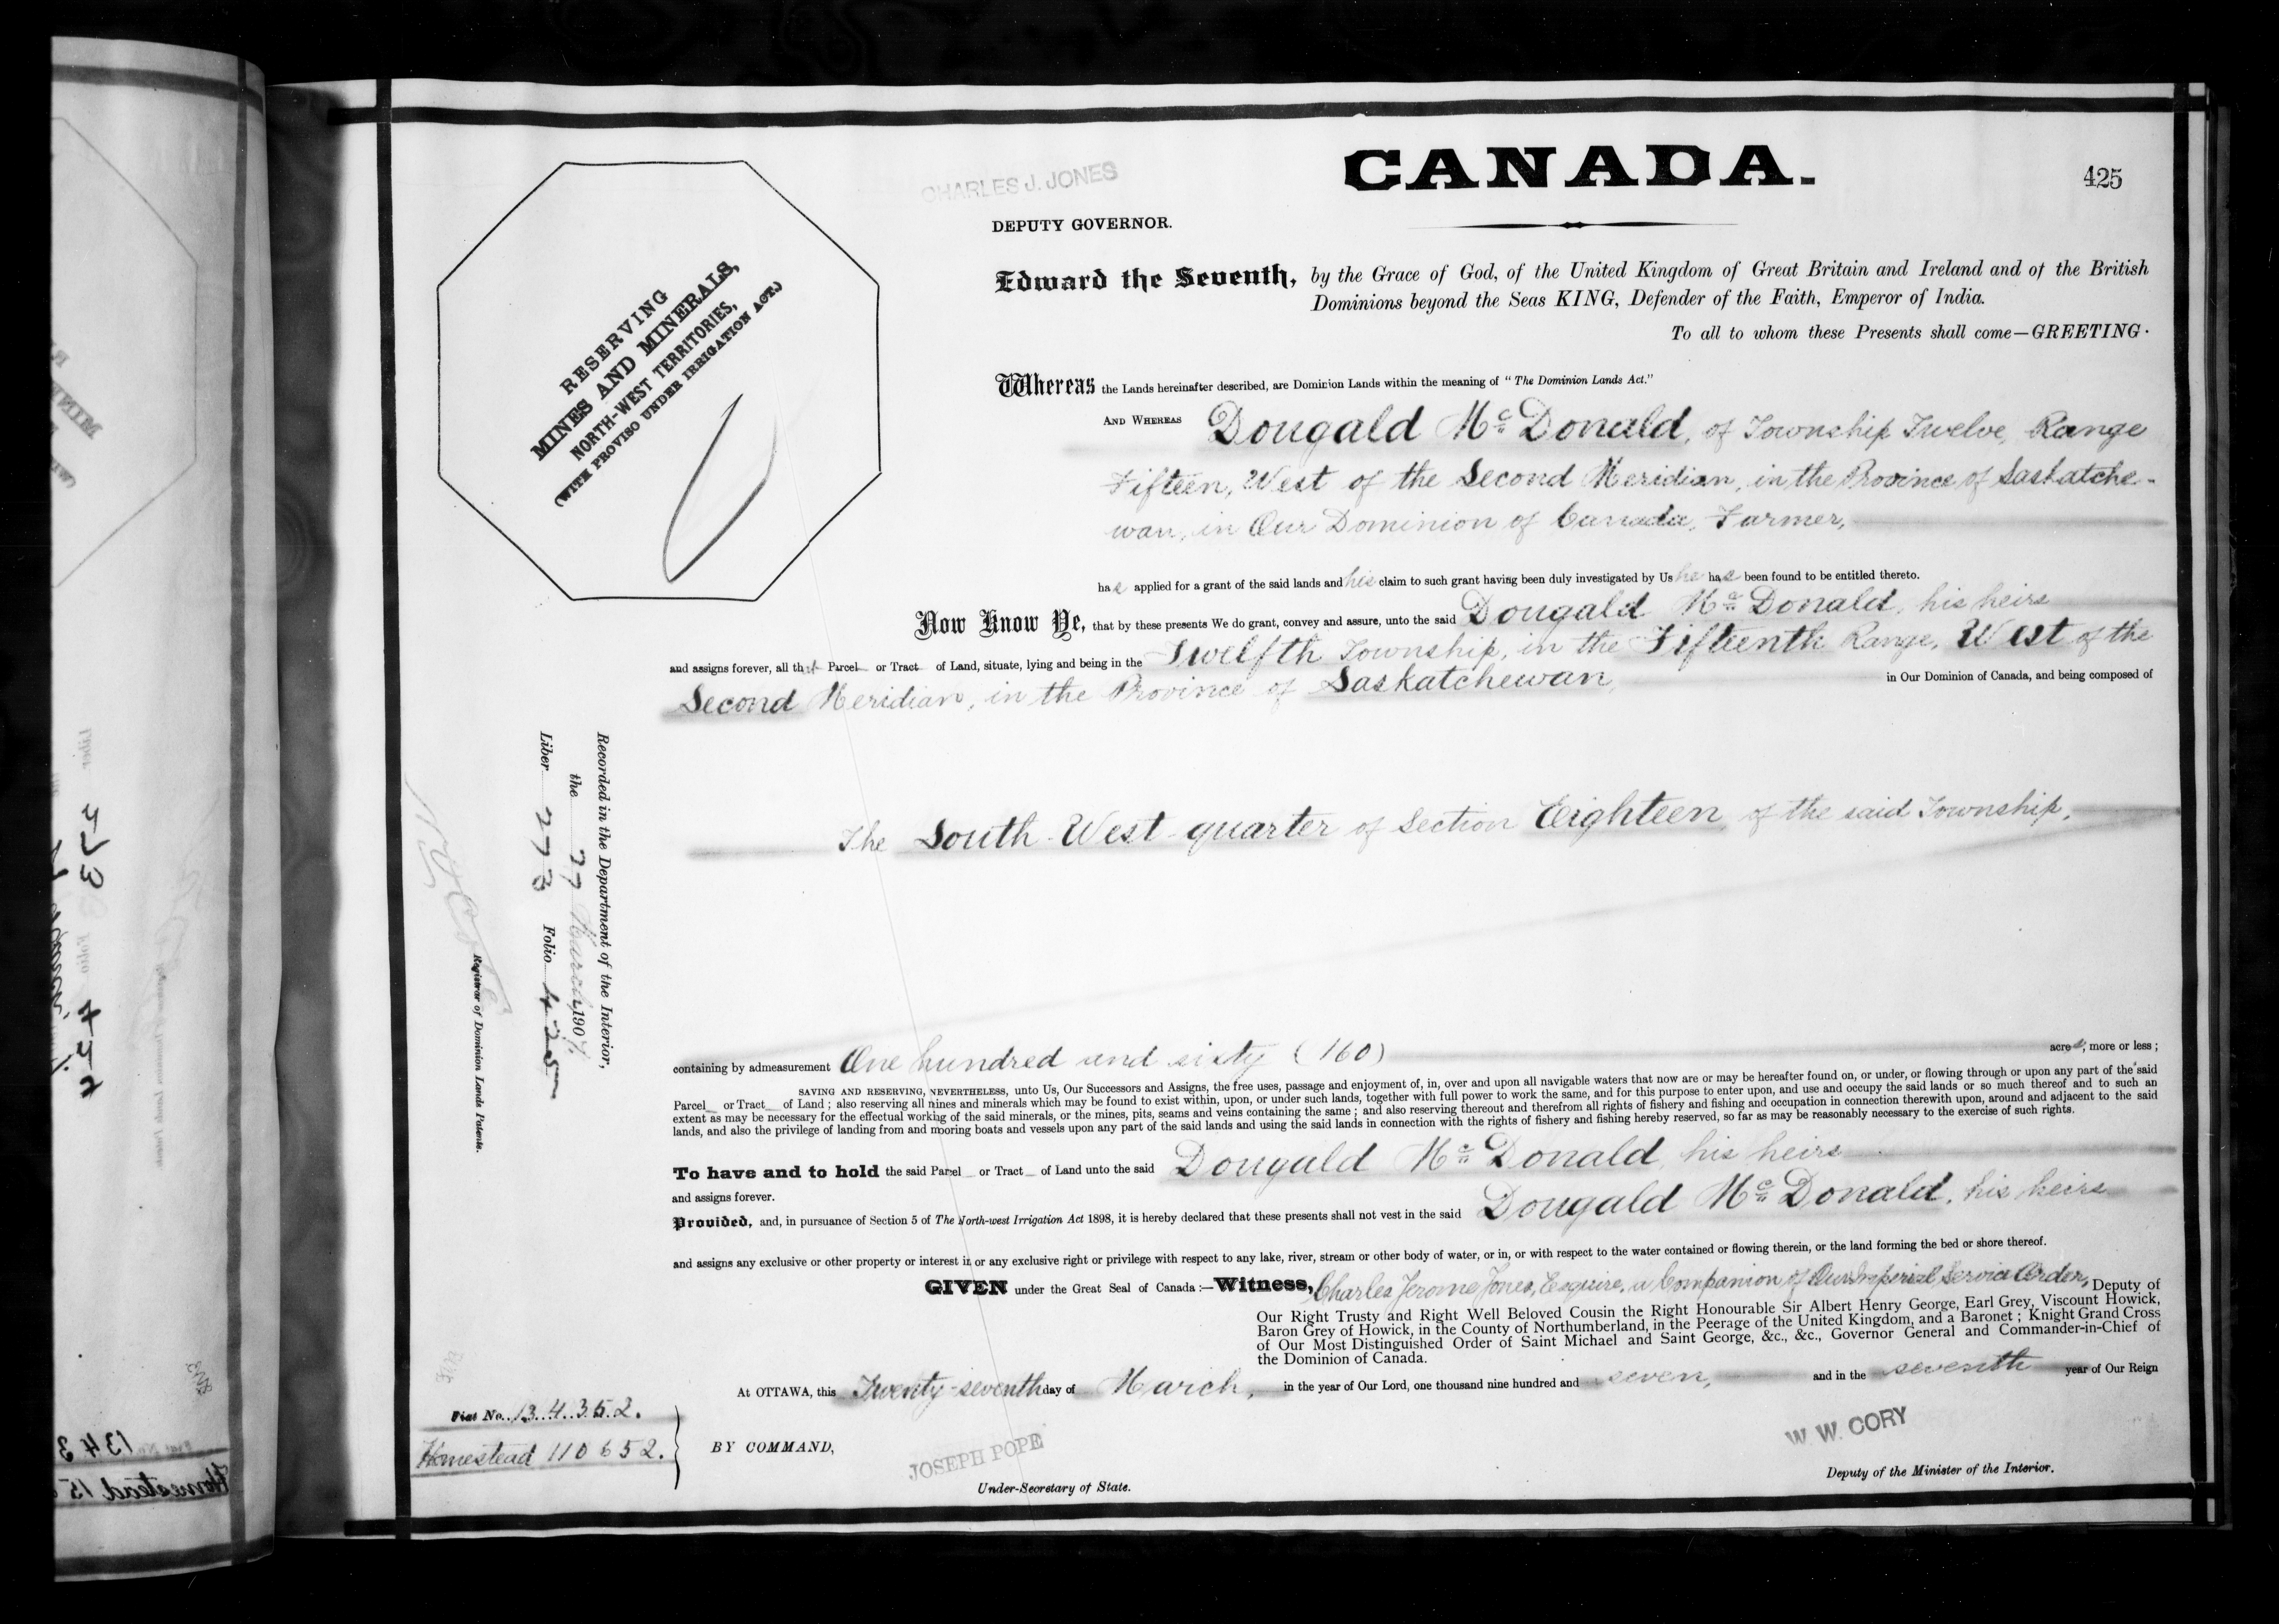 CANADA.
425
CHARLES J. JONES
DEPUTY GOVERNOR.
RESERVING
MINES AND MINERALS,
NORTH-WEST TERRITORIES,
(WITH PROVISO UNDER IRRIGATION ACT.)
Edward the Seventh, by the Grace of God, of the United Kingdom of Great Britain and Ireland and of the British
Dominions beyond the Seas KING, Defender of the Faith, Emperor of India.
To all to whom these Presents shall come—GREETING.
Whereas the Lands hereinafter described, are Dominion Lands within the meaning of "The Dominion Lands Act."
AND WHEREAS Dougald McDonald, of Township Twelve, Range
Fifteen, West of the Second Meridian, in the Province of Saskatche-
wan, in Our Dominion of Canada, Farmer,
has applied for a grant of the said lands and his claim to such grant having been duly investigated by Us he has been found to be entitled thereto.
Now Know Ye, that by these presents We do grant, convey and assure, unto the said Dougald McDonald, his heirs
and assigns forever, all that Parcel or Tract of Land, situate, lying and being in the Twelfth Township, in the Fifteenth Range, West of the
Second Meridian, in the Province of Saskatchewan, in Our Dominion of Canada, and being composed of
The South-West quarter of Section Eighteen, of the said Township,
containing by admeasurement One hundred and sixty (160) acres, more or less;
SAVING AND RESERVING, NEVERTHELESS, unto Us, Our Successors and Assigns, the free uses, passage and enjoyment of, in, over and upon all navigable waters that now are or may be hereafter found on, or under, or flowing through or upon any part of the said
Parcel or Tract of Land; also reserving all mines and minerals which may be found to exist within, upon, or under such lands, together with full power to work the same, and for this purpose to enter upon, and use and occupy the said lands or so much thereof and to such an
extent as may be necessary for the effectual working of the said minerals, or the mines, pits, seams and veins containing the same; and also reserving thereout and therefrom all rights of fishery and fishing and occupation in connection therewith upon, around and adjacent to the said
lands, and also the privilege of landing from and mooring boats and vessels upon any part of the said lands and using the said lands in connection with the rights of fishery and fishing hereby reserved, so far as may be reasonably necessary to the exercise of such rights.
To have and to hold the said Parcel or Tract of Land unto the said Dougald McDonald, his heirs
and assigns forever.
Provided, and, in pursuance of Section 5 of The North-west Irrigation Act 1898, it is hereby declared that these presents shall not vest in the said Dougald McDonald, his heirs
and assigns any exclusive or other property or interest in or any exclusive right or privilege with respect to any lake, river, stream or other body of water, or in, or with respect to the water contained or flowing therein, or the land forming the bed or shore thereof.
GIVEN under the Great Seal of Canada:—Witness, Charles Jerome Jones, Esquire, a Companion of Our Imperial Service Order, Deputy of
Our Right Trusty and Right Well Beloved Cousin the Right Honourable Sir Albert Henry George, Earl Grey, Viscount Howick,
Baron Grey of Howick, in the County of Northumberland, in the Peerage of the United Kingdom, and a Baronet; Knight Grand Cross
of Our Most Distinguished Order of Saint Michael and Saint George, &c., &c., Governor General and Commander-in-Chief of
the Dominion of Canada.
At OTTAWA, this Twenty-seventh day of March, in the year of Our Lord, one thousand nine hundred and seven, and in the seventh year of Our Reign
BY COMMAND,
JOSEPH POPE
Under-Secretary of State.
W. W. CORY
Deputy of the Minister of the Interior.
Recorded in the Department of the Interior,
the 27 March, 1907,
Liber 273 Folio 425
Registrar of Dominion Lands Patents.
Fiat No. 134352.
Homestead 110652.